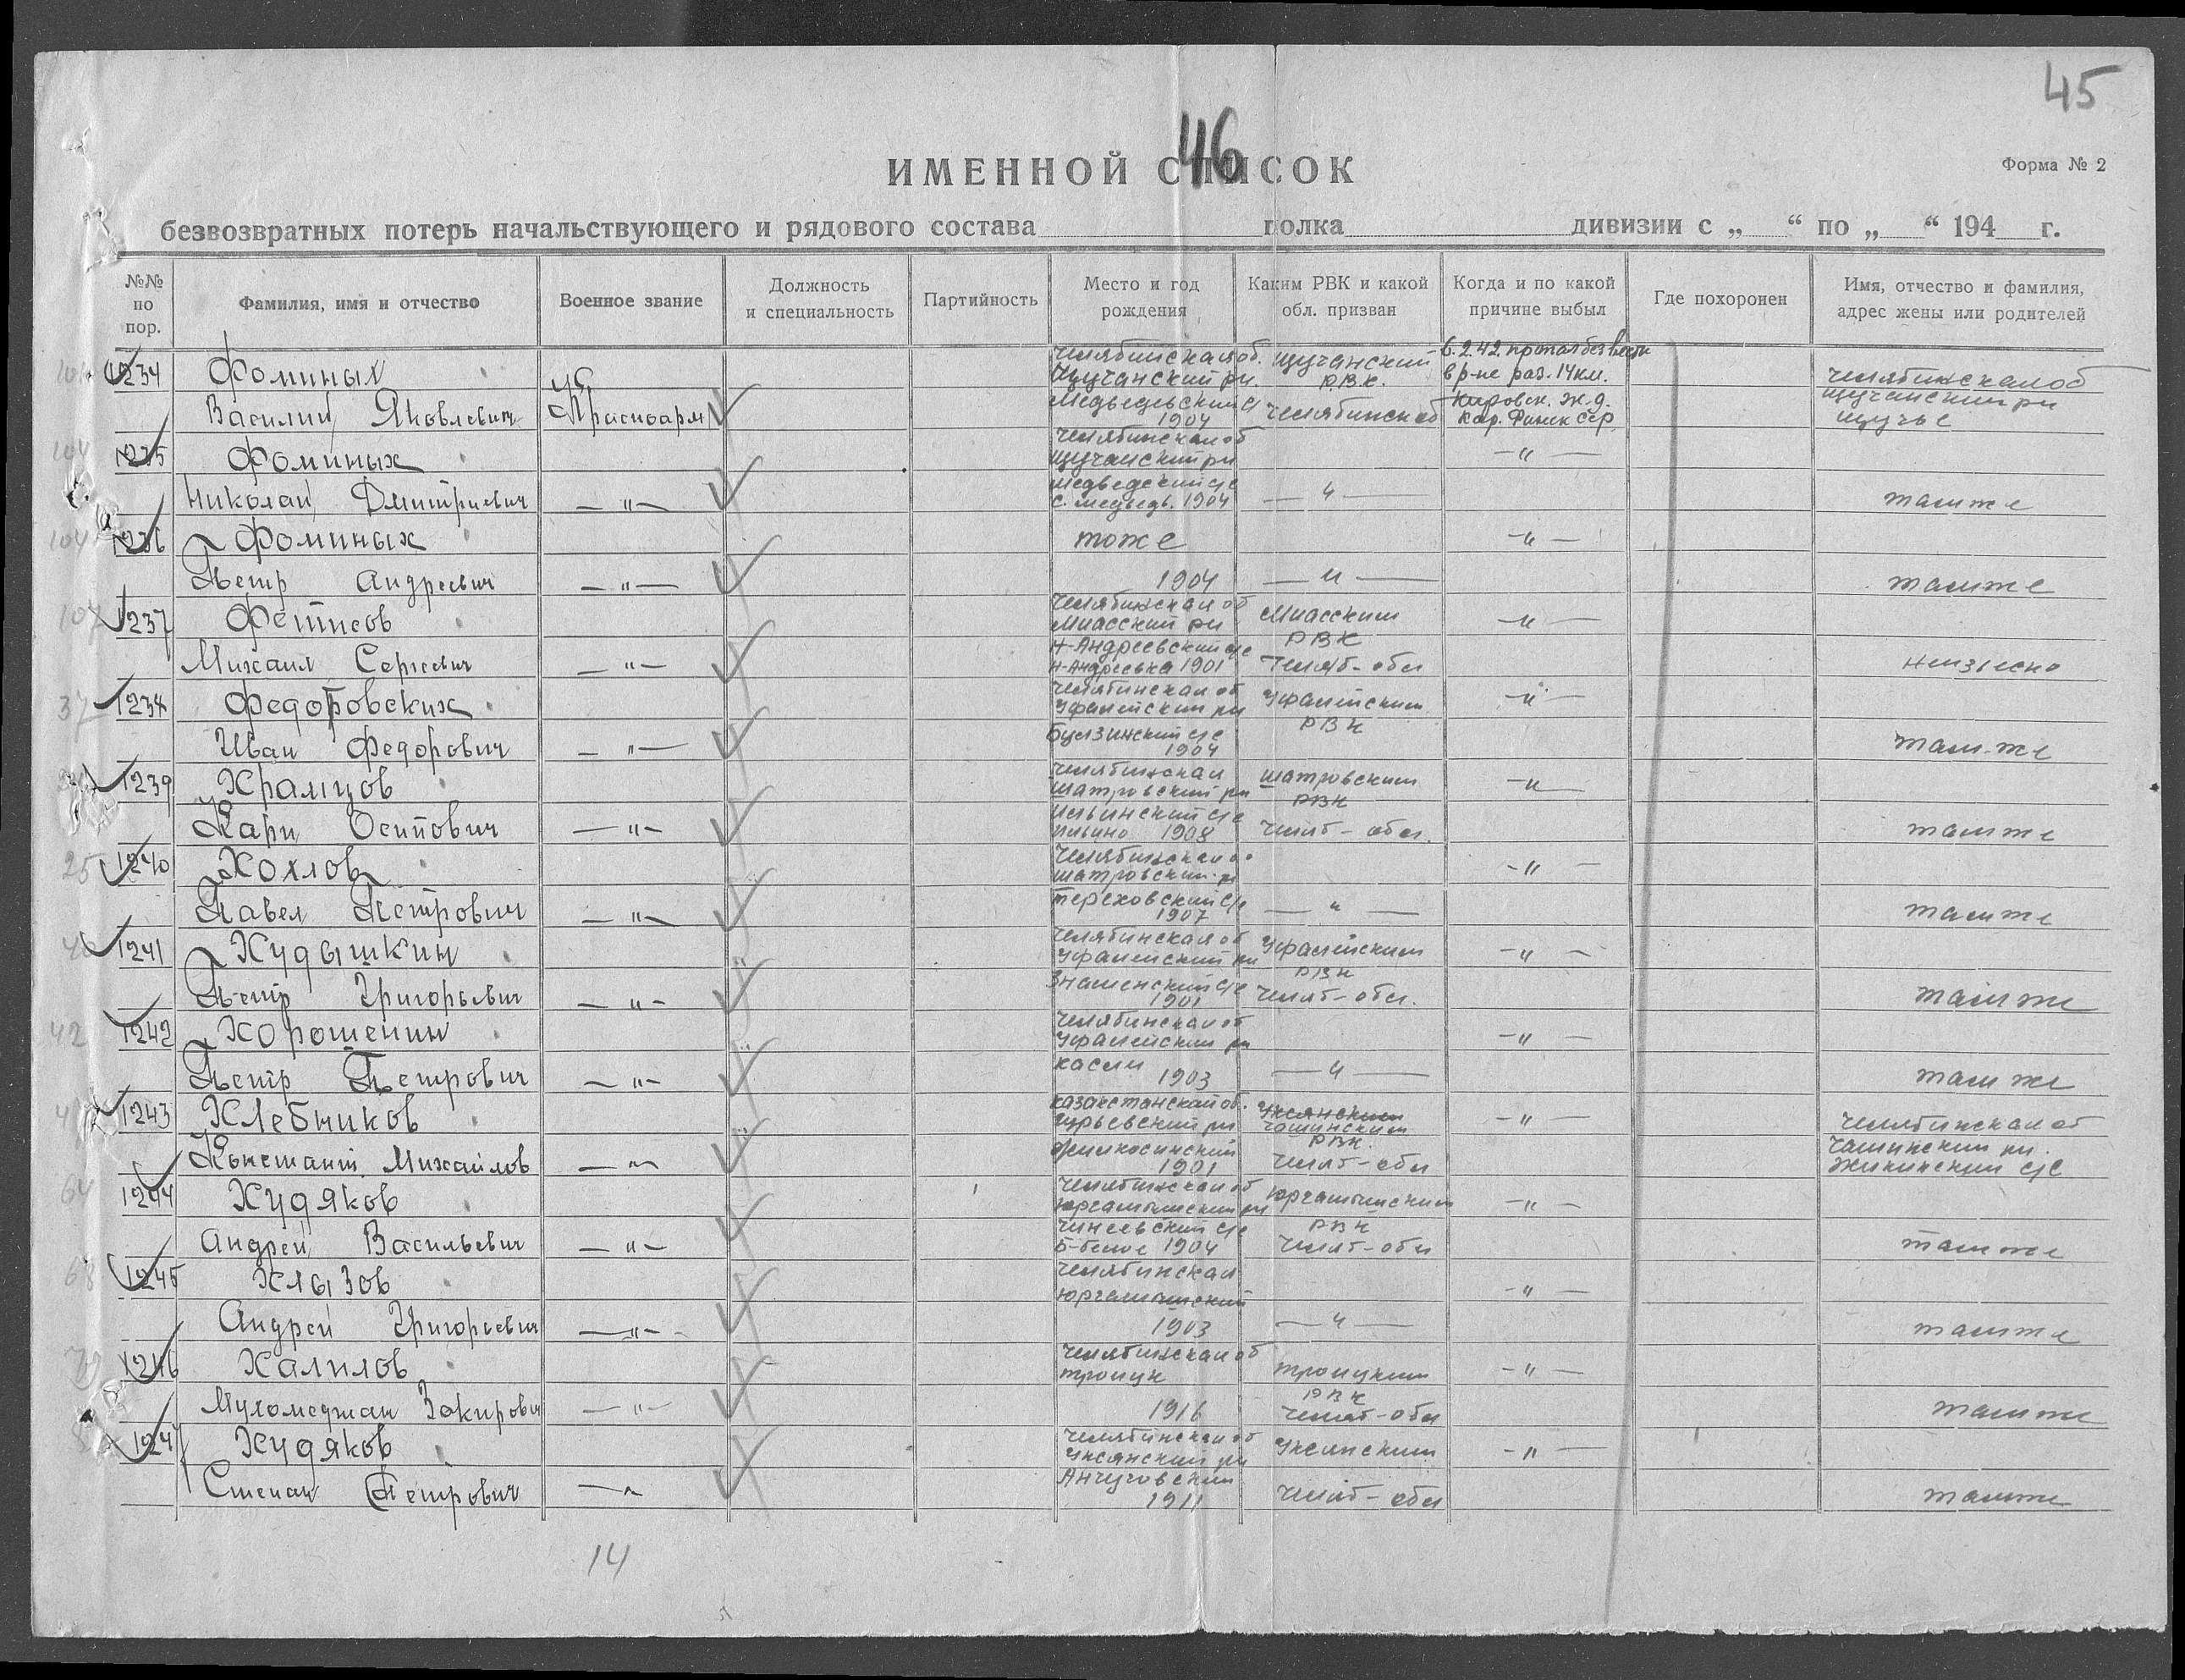 45
46
ИМЕННОЙ СПИСОК
Форма № 2
безвозвратных потерь начальствующего и рядового состава полка дивизии с „ “ по „ “ 194 г.
№№ по пор.
Фамилия, имя и отчество
Военное звание
Должность и специальность
Партийность
Место и год рождения
Каким РВК и какой обл. призван
Когда и по какой причине выбыл
Где похоронен
Имя, отчество и фамилия, адрес жены или родителей
1234 Фоминых Челябинская об. Щучанский 6.2.42 пропал без вести
Щучанский рн. РВК. в р-не раз. 14 км. Челябинская об
Василий Яковлевич Красноарм Медведьский с/с Челябинской об Кировск. ж.д. Щучанский рн
1904 Кар. Финск сср Щучье
1235 Фоминых Челябинская об
Щучанский рн — " —
Николай Дмитриевич — " — Медведский с/с — " — там же
с. Медведь. 1904
1236 Фоминых тоже — " —
Петр Андреевич — " — 1904 — " — там же
1237 Фетисов Челябинская об Миасским — " —
Миасский рн РВК
Михаил Сергеевич — " — Н-Андреевский с/с Челяб-обл
Н-Андреевка 1901
1238 Федоровских Челябинская об Уфалейским — " —
Уфалейский рн РВК
Иван Федорович — " — 1904 там-же
1239 Храмцов Челябинская Шатровским — " —
Шатровский рн РВК
Карп Осипович — " — Ильинский с/с Челяб-обл. там же
Ильино 1908
1240 Хохлов Челябинская об — " —
Шатровский рн
Павел Петрович — " — Тереховский с/с — " — там же
1907
1241 Худышкин Челябинская об Уфалейским — " —
Уфалейский рн РВК
Петр Григорьевич — " — Знаменский с/с Челяб-обл. там же
1901
1242 Хорошенин Челябинская об — " —
Уфалейский рн
Петр Петрович — " — Касли — " — там же
1903
1243 Хлебников Казакстанской об. Уксянским — " — Челябинская об
Гурьевский рн Чашинским Чашинский рн.
РВК. Жикинский с/с
Констант Михайлов — " — 1901 Челяб-обл
1244 Худяков Челябинская об Юргамышским — " —
Юргамышский рн РВК
Андрей Васильевич — " — Чинеевский с/с Челяб-обл там же
Б-Белое 1904
1245 Хлызов Челябинская — " —
Юргамышский
Андрей Григорьевич — " — 1903 — " — там же
1246 Халилов Челябинская об Троицким — " —
Троицк РВК
Мухомеджан Закирович — " — 1916 Челяб-обл там же
1247 Худяков Челябинская об Уксянским — " —
Уксянский рн
Степан Петрович — " — Анчуговский Челяб-обл там же
1911
14